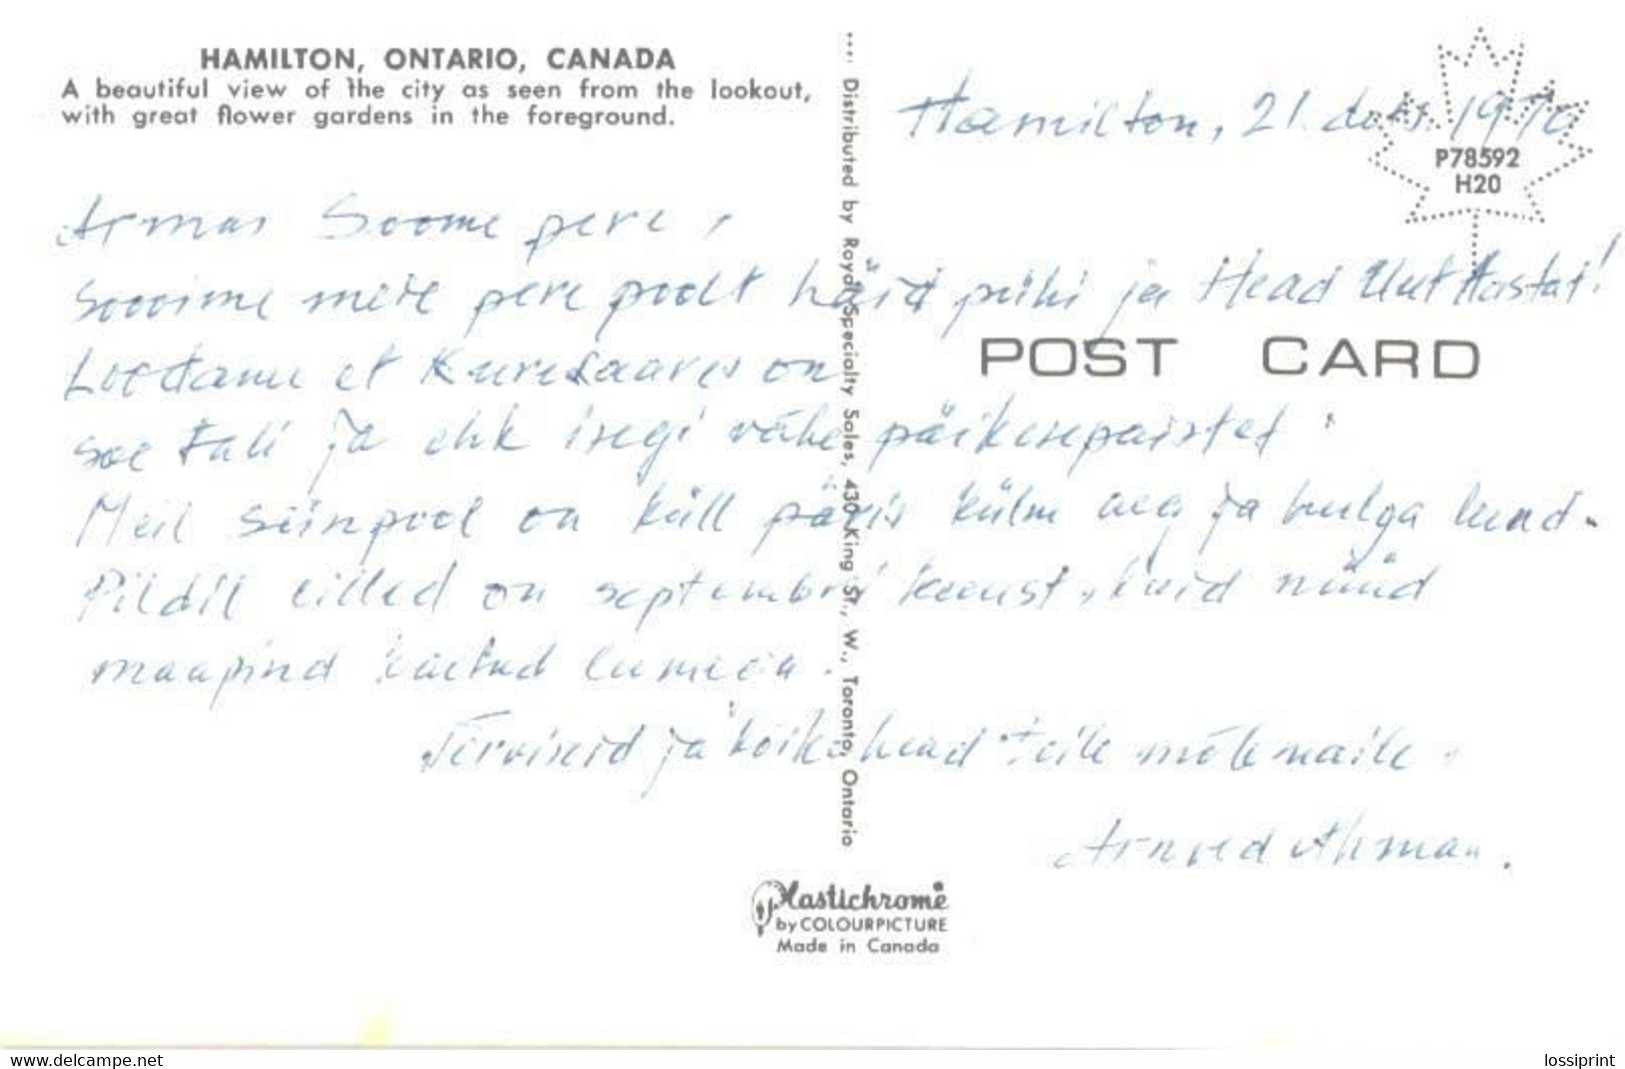 HAMILTON, ONTARIO, CANADA
A beautiful view of the city as seen from the lookout,
with great flower gardens in the foreground.
Hamilton, 21. dets. 1970
P78592
H20
Armas Soome pere,
Soovime meie pere poolt häid pühi ja Head Uut Aastat!
Loodame et Kuresaares on
soe tali ja ehk isegi vähe päikesepaistet.
Meil siinpool on küll päris külm aeg ja hulga lund.
Pildil lilled on septembri kuust, kuid nüüd
maapind kaetud lumega.
Terviseid ja kõike head teile mõlemaile.
Arved Ahman.
POST CARD
Distributed by Royal Specialty Sales, 430 King St., W., Toronto, Ontario
Plastichrome
by COLOURPICTURE
Made in Canada
www.delcampe.net
lossiprint